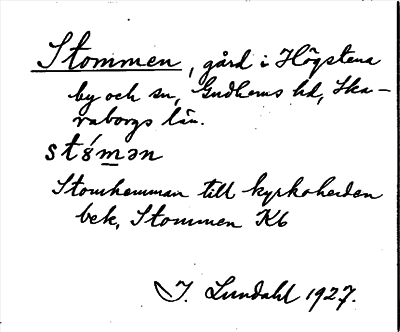 Stommen, gård i Högstena
by och sn, Gudhems hd, Ska-
raborgs län.
stó̤mən
Stomhemman till kyrkoherden
bek, Stommen Kb
I. Lundahl 1927.